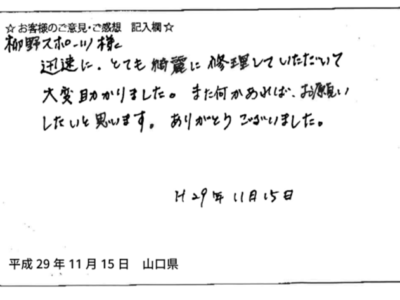 ☆お客様のご意見・ご感想 記入欄☆
柳野スポーツ様
迅速に、とても綺麗に修理していただいて
大変助かりました。また何かあれば、お願い
したいと思います。ありがとうございました。
H29年11月15日
平成29年11月15日 山口県